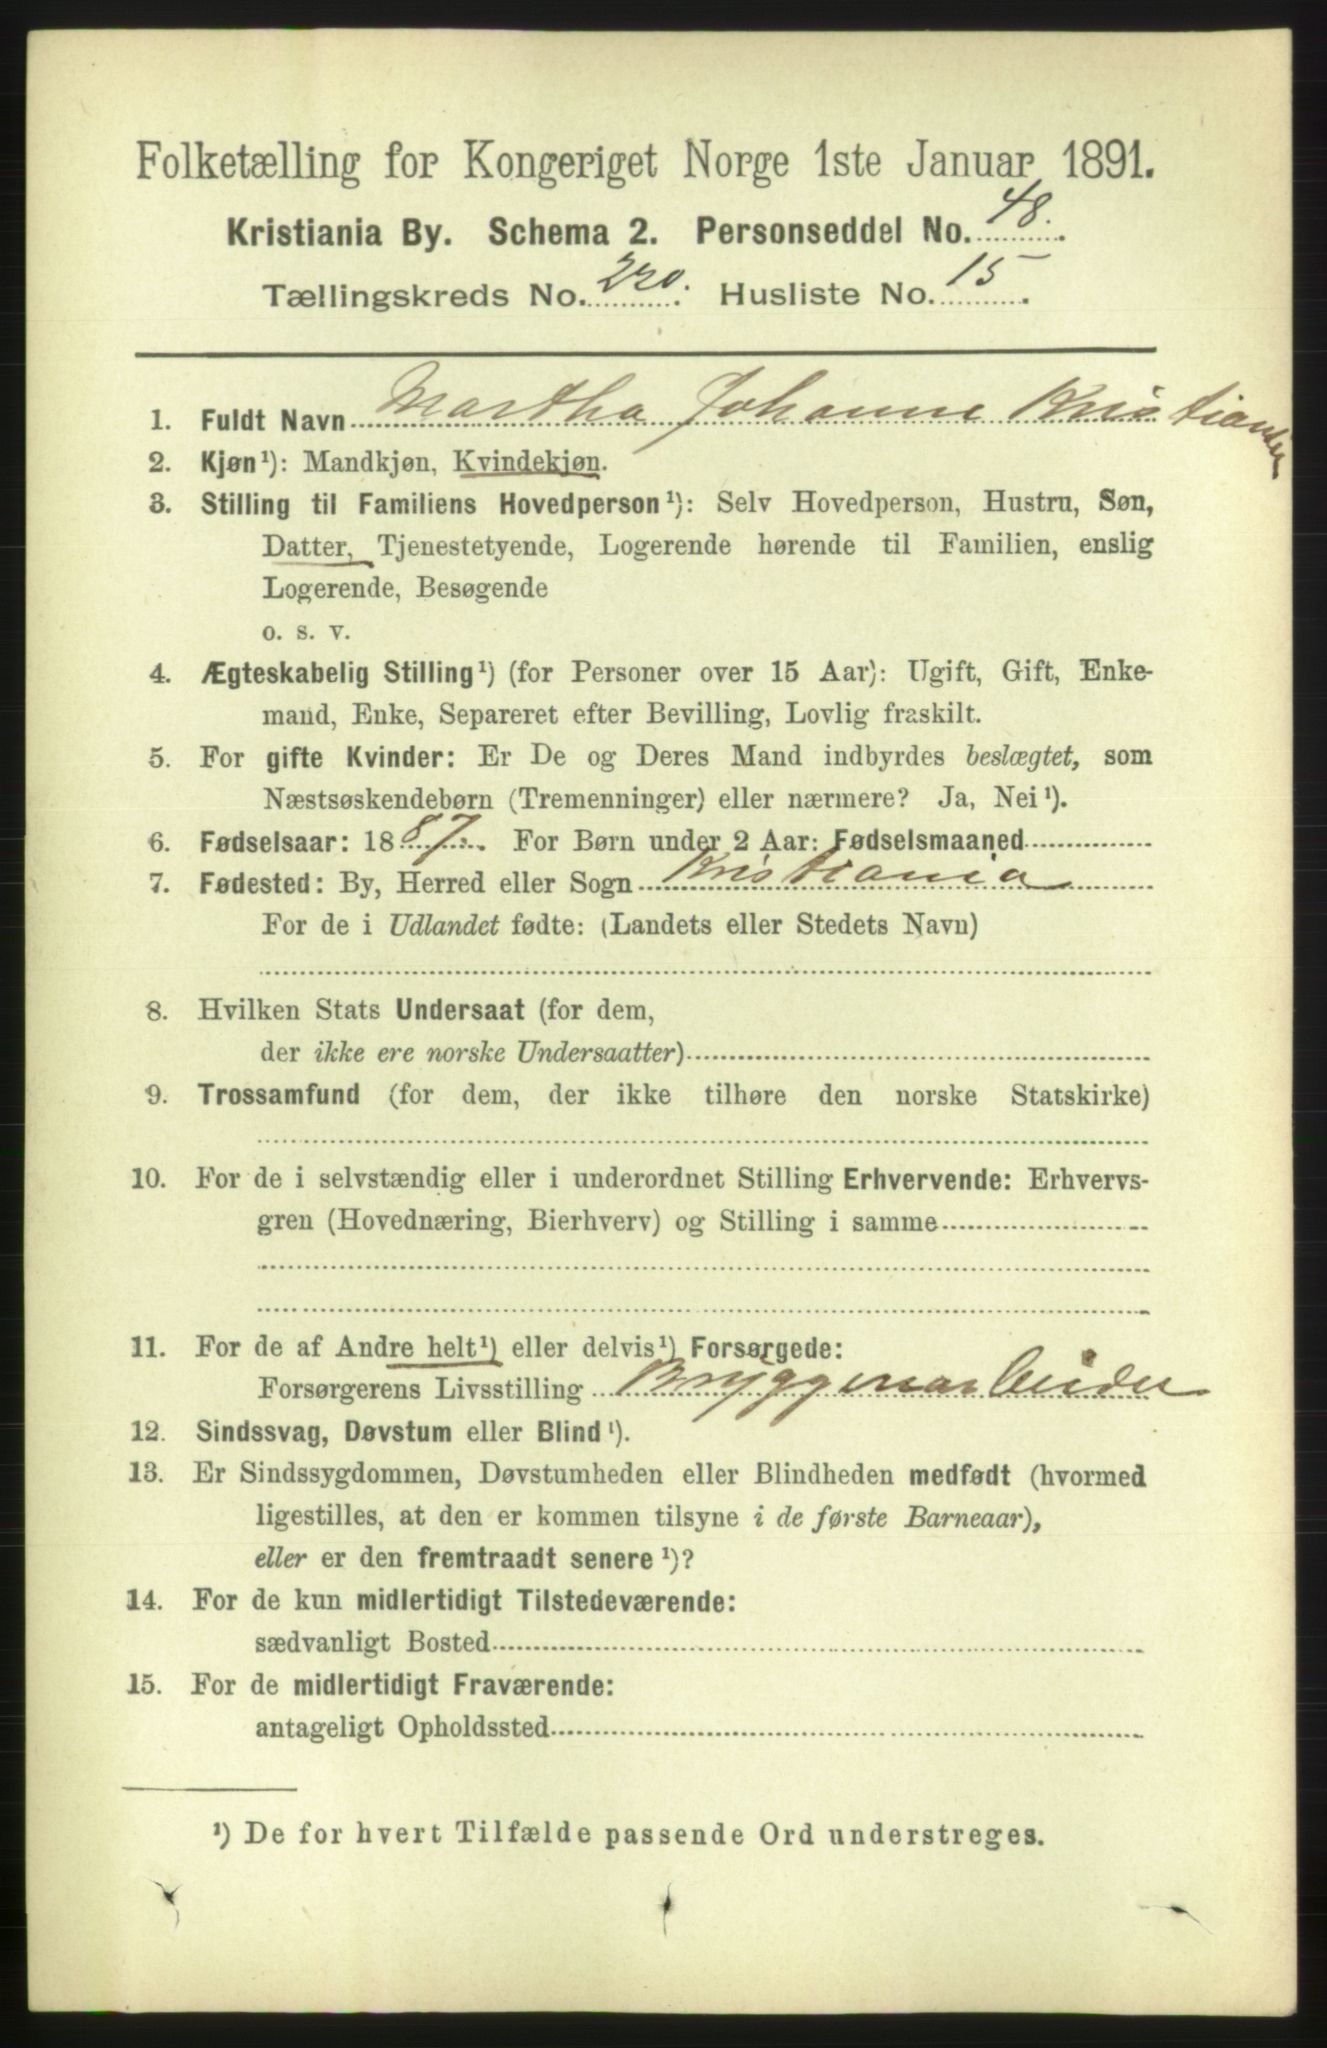 Folketælling for Kongeriget Norge 1ste Januar 1891.
Kristiania By. Schema 2. Personseddel No. 48.
Tællingskreds No. 220. Husliste No. 15.
1. Fuldt Navn Martha Johanne Kristiansen
2. Kjøn¹): Mandkjøn, Kvindekjøn.
3. Stilling til Familiens Hovedperson¹): Selv Hovedperson, Hustru, Søn,
Datter, Tjenestetyende, Logerende hørende til Familien, enslig
Logerende, Besøgende
o. s. v.
4. Ægteskabelig Stilling¹) (for Personer over 15 Aar): Ugift, Gift, Enke-
mand, Enke, Separeret efter Bevilling, Lovlig fraskilt.
5. For gifte Kvinder: Er De og Deres Mand indbyrdes beslægtet, som
Næstsøskendebørn (Tremenninger) eller nærmere? Ja, Nei¹).
6. Fødselsaar: 1887. For Børn under 2 Aar: Fødselsmaaned
7. Fødested: By, Herred eller Sogn Kristiania
For de i Udlandet fødte: (Landets eller Stedets Navn)
8. Hvilken Stats Undersaat (for dem,
der ikke ere norske Undersaatter)
9. Trossamfund (for dem, der ikke tilhøre den norske Statskirke)
10. For de i selvstændig eller i underordnet Stilling Erhvervende: Erhvervs-
gren (Hovednæring, Bierhverv) og Stilling i samme
11. For de af Andre helt¹) eller delvis¹) Forsørgede:
Forsørgerens Livsstilling Bryggerarbeider
12. Sindssvag, Døvstum eller Blind¹).
13. Er Sindssygdommen, Døvstumheden eller Blindheden medfødt (hvormed
ligestilles, at den er kommen tilsyne i de første Barneaar),
eller er den fremtraadt senere¹)?
14. For de kun midlertidigt Tilstedeværende:
sædvanligt Bosted
15. For de midlertidigt Fraværende:
antageligt Opholdssted
¹) De for hvert Tilfælde passende Ord understreges.